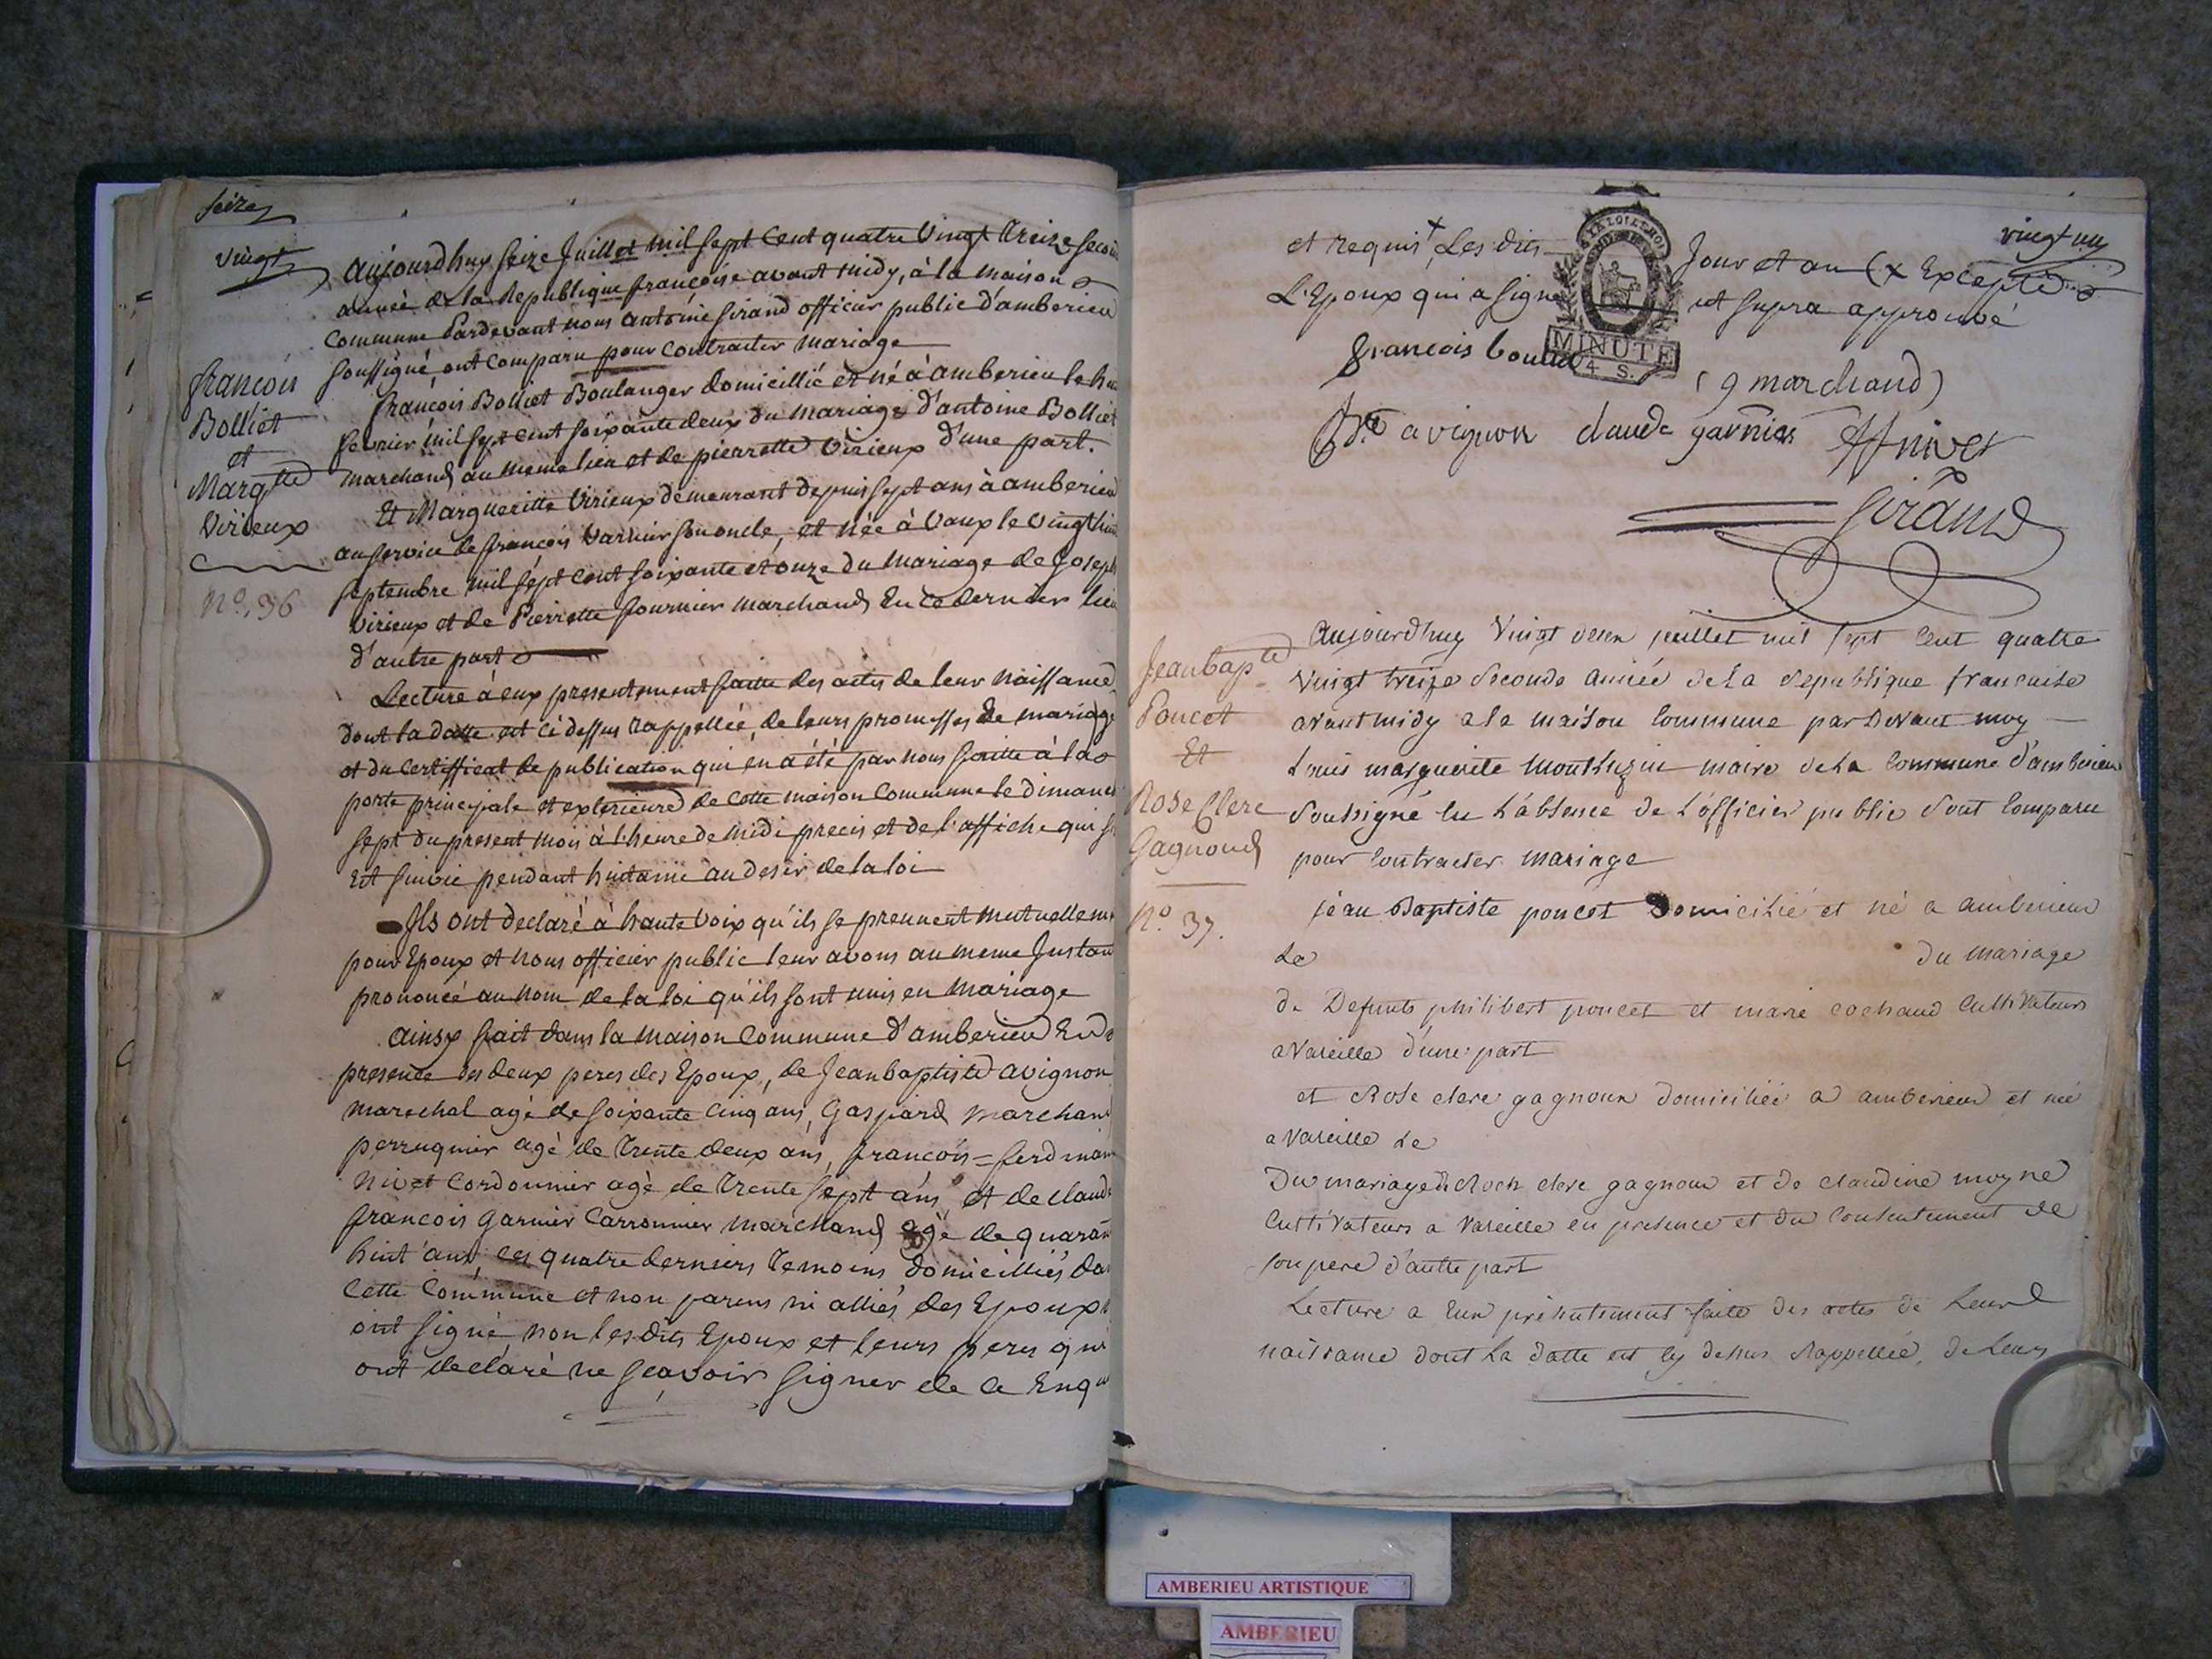 seize
vingt
aujourdhuy seize Juillet mil sept Cent quatre Vingt treize secon
année de la Republique françoise avant midy, à la maison
Commune Pardevant nous antoine Sirand officier public d'amberieu
soussigné, ont comparu pour contracter mariage
françois
Bolliet
et
Margtte
Virieux
n°. 36
françois Bolliet Boulanger domicillié et né à amberieu le hu
fevrier mil sept cent soixante deux du mariage d'antoine Bolliet
marchand au meme lieu et de pierrette Virieux d'une part.
Et Margueritte Virieux demeurant depuis sept ans à amberieu
au service de françois Varnier son oncle, et née à Vaux le vingt hui
septembre mil sept cent soixante et onze du mariage de Joseph
Virieux et de Pierrette fournier marchand en ce dernier lieu
d'autre part
Lecture à eux presentement faitte des actes de leur naissance
dont la datte est ci dessus rappellée, de leurs promesses de mariage
et du certifficat de publication qui en a été par nous faitte à la
porte principale et exterieure de cette maison Commune le dimanch
sept du present mois à l'heure de midi precis et de l'affiche qui s
est suivie pendant huitaine au desir de la loi
Ils ont declaré à haute voix qu'ils se prennent mutuelleme
pour Epoux et nous officier public leur avons au meme Instan
prononcé au nom de la loi qu'ils sont unis en mariage
ainsy fait dans la maison Commune d'amberieu En
presence des deux peres des Epoux, de Jean baptiste avignon
marechal agé de soixante cinq ans, Gaspard marchand
perruquier agé de trente deux ans, francois=ferdinan
nivet Cordonnier agé de trente sept ans, et de claude
francois Garnier Carronnier marchand agé de quaran
huit ans, les quatre derniers temoins domicilliés da
cette Commune et non parens ni alliés des Epoux
ont signé, non les dits Epoux et leurs peres qui
ont declaré ne scavoir signer de ce Enq
vingt un
et requis + Les dits Jour et an (x Excepté
L'Epoux qui a signé ut supra approuvé
MINUTE
4 S.
françois boulliet
(g marchand)
Bte avignon claude garnier ffnivet
Sirand
Jean bapte
Poucet
Et
Rose Clerc
Gagnoud
n°. 37.
Aujourdhuy Vingt deux juillet mil sept Cent quatre
Vingt treize seconde année de La republique francaise
avant midy a la maison Commune par Devant moy
Louis marguerite Monthuzin maire de La Commune d'amberieu
soussigné en L'absence de L'officier public sont Comparu
pour Contracter mariage
jéan Baptiste poucet Domicilié et né a amberieu
Le du mariage
de Defunts philibert poucet et marie cochand Cultivateurs
a Vareille d'une part
et Rose clerc gagnoux domiciliée a amberieu et née
a Vareille Le
Du mariage de Roch clerc gagnoux et de claudine moyne
Cultivateurs a Vareille en presence et du Consentement de
son pere d'autre part
Lecture a Eux présentement faite des actes de Leur
naissance dont La datte est cy dessus Rappellée, de Leurs
AMBERIEU ARTISTIQUE
AMBERIEU